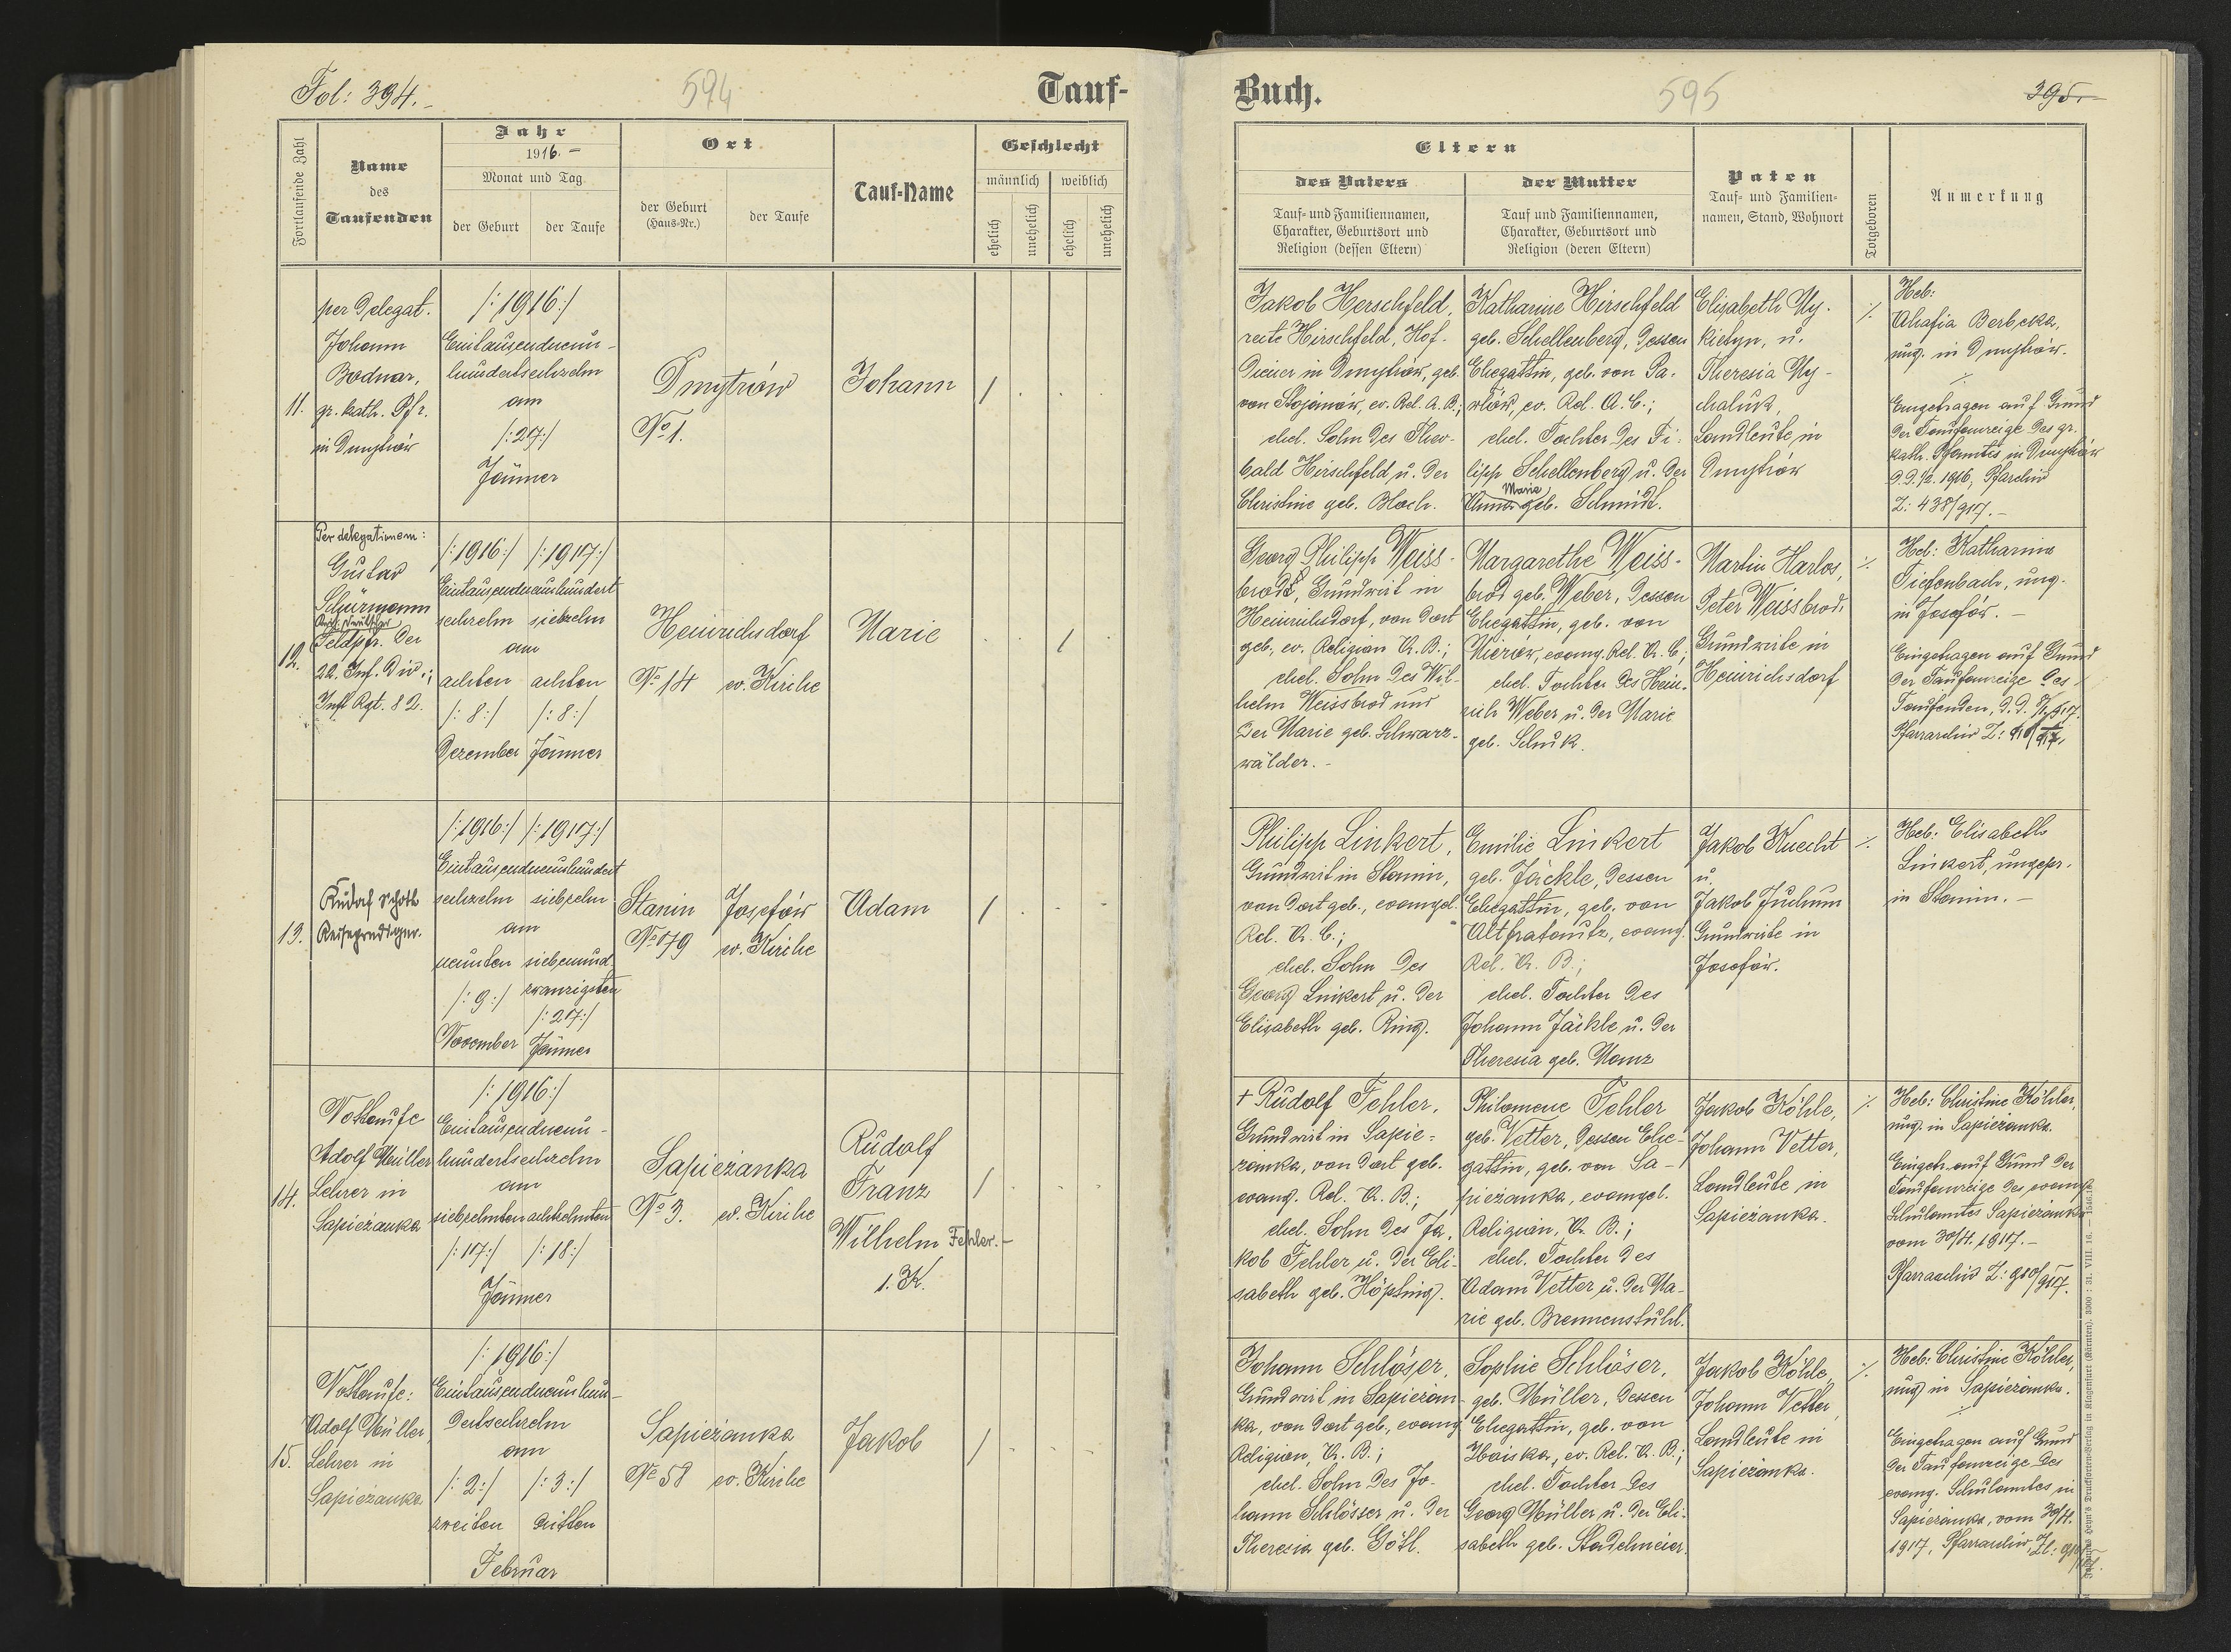 Fol: 394.-
594
Tauf-
Fortlaufende Zahl
Name
des
Taufenden
Jahr
1916.-
Monat und Tag
der Geburt
der Taufe
Ort
der Geburt
(Haus-Nr.)
der Taufe
Tauf-Name
Geschlecht
männlich
weiblich
ehelich
unehelich
ehelich
unehelich
11.
per Delegat.
Johann
Bodnar,
gr. kath. Pfr.
in Dmytrów
/:1916:/
Eintausendneun-
hundertsechzehn
am
/:27:/
Jänner
Dmytrów
No 1.
Johann
/
12.
Per delegationem:
Gustav
Schürmann
Feldpfr. der
22. Inf. Div.;
Inft Rgt. 82.
/:1916:/ /:1917:/
Eintausendneunhundert
sechzehn siebzehn
am
achten achten
/:8:/ /:8:/
Dezember Jänner
Heinrichsdorf
No 14 ev. Kirche
Marie
/
13.
Rudolf
Reiseprediger.
/:1916:/ /:1917:/
Eintausendneunhundert
sechzehn siebzehn
am
neunten siebenund-
zwanzigsten
/:9:/
/:27:/
November Jänner
Stanin Josefów
No 179 ev. Kirche
Adam
/
14.
Nottaufe
Adolf Müller
Lehrer in
Sapieżanka
/:1916:/
Eintausendneun-
hundertsechzehn
am
siebzehnten achtzehnten
/:17:/ /:18:/
Jänner
Sapieżanka
No 3. ev. Kirche
Rudolf
Franz
Wilhelm Fehler.-
1. K.
/
15.
Nottaufe:
Adolf Müller,
Lehrer in
Sapieżanka
/:1916:/
Eintausendneunhun-
dertsechzehn
am
/:2:/ /:3:/
zweiten dritten
Februar
Sapieżanka
No 58 ev. Kirche
Jakob
/
Buch.
595
395.-
Eltern
des Vaters
Tauf- und Familiennamen,
Charakter, Geburtsort und
Religion (dessen Eltern)
der Mutter
Tauf und Familiennamen,
Charakter, Geburtsort und
Religion (deren Eltern)
Paten
Tauf- und Familien-
namen, Stand, Wohnort
Totgeboren
Anmerkung
Jakob Herschfeld,
recte Hirschfeld, Hof-
diener in Dmytrów, geb.
von Stojanów, ev. Rel. A. B.;
ehel. Sohn des Theo-
bald Hirschfeld u. der
Christine geb. Bloch.
Katharine Hirschfeld
geb. Schellenberg, dessen
Ehegattin, geb. von Pa-
wlów, ev. Rel. A. C.;
ehel. Tochter des Fi-
lipp Schellenberg u. der
Marie
Anna geb. Schmidt.
Elisabeth My-
kietyn, u.
Theresia My-
chaluk,
Landleute in
Dmytrów
Heb:
Ahafia Berbeka,
ung. in Dmytrów.
Eingetragen auf Grund
der Taufanzeige des gr.
kath. Pfarramtes in Dmytrów
d.d. 1/2. 1916, Pfarchiv
Z: 438/917.-
Georg Philipp Weiss-
brodt, Grundwirt in
Heinrichsdorf, von dort
geb., ev. Religion A. B.;
ehel. Sohn des Wil-
helm Weissbrod und
der Marie geb. Schwarz-
wälder.-
Margarethe Weiss-
brod geb. Weber, dessen
Ehegattin, geb. von
Nierów, evang. Rel. A. C.;
ehel. Tochter des Hein-
rich Weber u. der Marie
geb. Schuk.
Martin Harlos,
Peter Weissbrod,
Grundwirte in
Heinrichsdorf
Heb: Katharina
Tiefenbach, ung.
in Josefów.-
Eingetragen auf Grund
der Taufanzeige des
Taufenden, d.d.
Pfarrarchiv Z:
Philipp Linkert,
Grundwirt in Stanin,
von dort geb., evangel.
Rel. A. C.;
ehel. Sohn des
Georg Linkert u. der
Elisabeth geb. Ring.
Emilie Linkert
geb. Jäckle, dessen
Ehegattin, geb. von
Altfratautz, evang.
Rel. A. B.;
ehel. Tochter des
Johann Jäckle u. der
Theresia geb. Manz
Jakob Knecht
u.
Jakob Juchum
Grundwirte in
Josefów.
Heb: Elisabeth
Linkert, ungepr.
in Stanin.-
+ Rudolf Fehler,
Grundwirt in Sapie-
żanka, von dort geb.
evang. Rel. A. B.;
ehel. Sohn des Ja-
kob Fehler u. der Eli-
sabeth geb. Höpfing.
Philomene Fehler
geb. Vetter, dessen Ehe-
gattin, geb. von Sa-
pieżanka, evangel.
Religion, A. B.;
ehel. Tochter des
Adam Vetter u. der Ma-
rie geb. Brennenstuhl.
Jakob Köhle,
Johann Vetter,
Landleute in
Sapieżanka.
Heb: Christine Köhler,
ung. in Sapieżanka.
Eingetr. auf Grund der
Taufanzeige des evang.
Schulamtes Sapieżanka
vom 30/4. 1917.-
Pfarrarchiv Z: 910/917.
Johann Schlöser,
Grundwirt in Sapieżan-
ka, von dort geb., evang.
Religion, A. B.;
ehel. Sohn des Jo-
hann Schlösser u. der
Theresia geb. Götl.
Sophie Schlöser,
geb. Müller, dessen
Ehegattin, geb. von
Hoiska, ev. Rel. A. B.;
ehel. Tochter des
Georg Müller u. der Eli-
sabeth geb. Stadelmeier.
Jakob Köhle,
Johann Vetter,
Landleute in
Sapieżanka.
Heb: Christine Köhler,
ung. in Sapieżanka.
Eingetragen auf Grund
der Taufanzeige des
evang. Schulamtes in
Sapieżanka, vom 30/4.
1917, Pfarrarchiv, Zl: